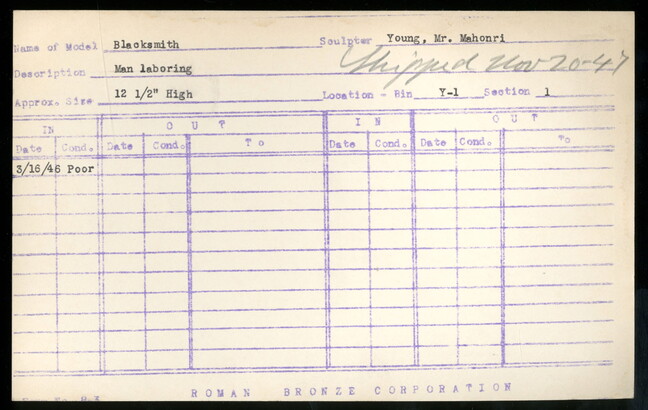 Name of Model Blacksmith Sculptor Young, Mr. Mahonri
Shipped Nov 20-47
Description Man laboring
Approx. Size 12 1/2" High Location - Bin Y-1 Section 1
IN OUT IN OUT
Date Cond. Date Cond. To Date Cond. Date Cond. To
3/16/46 Poor
ROMAN BRONZE CORPORATION